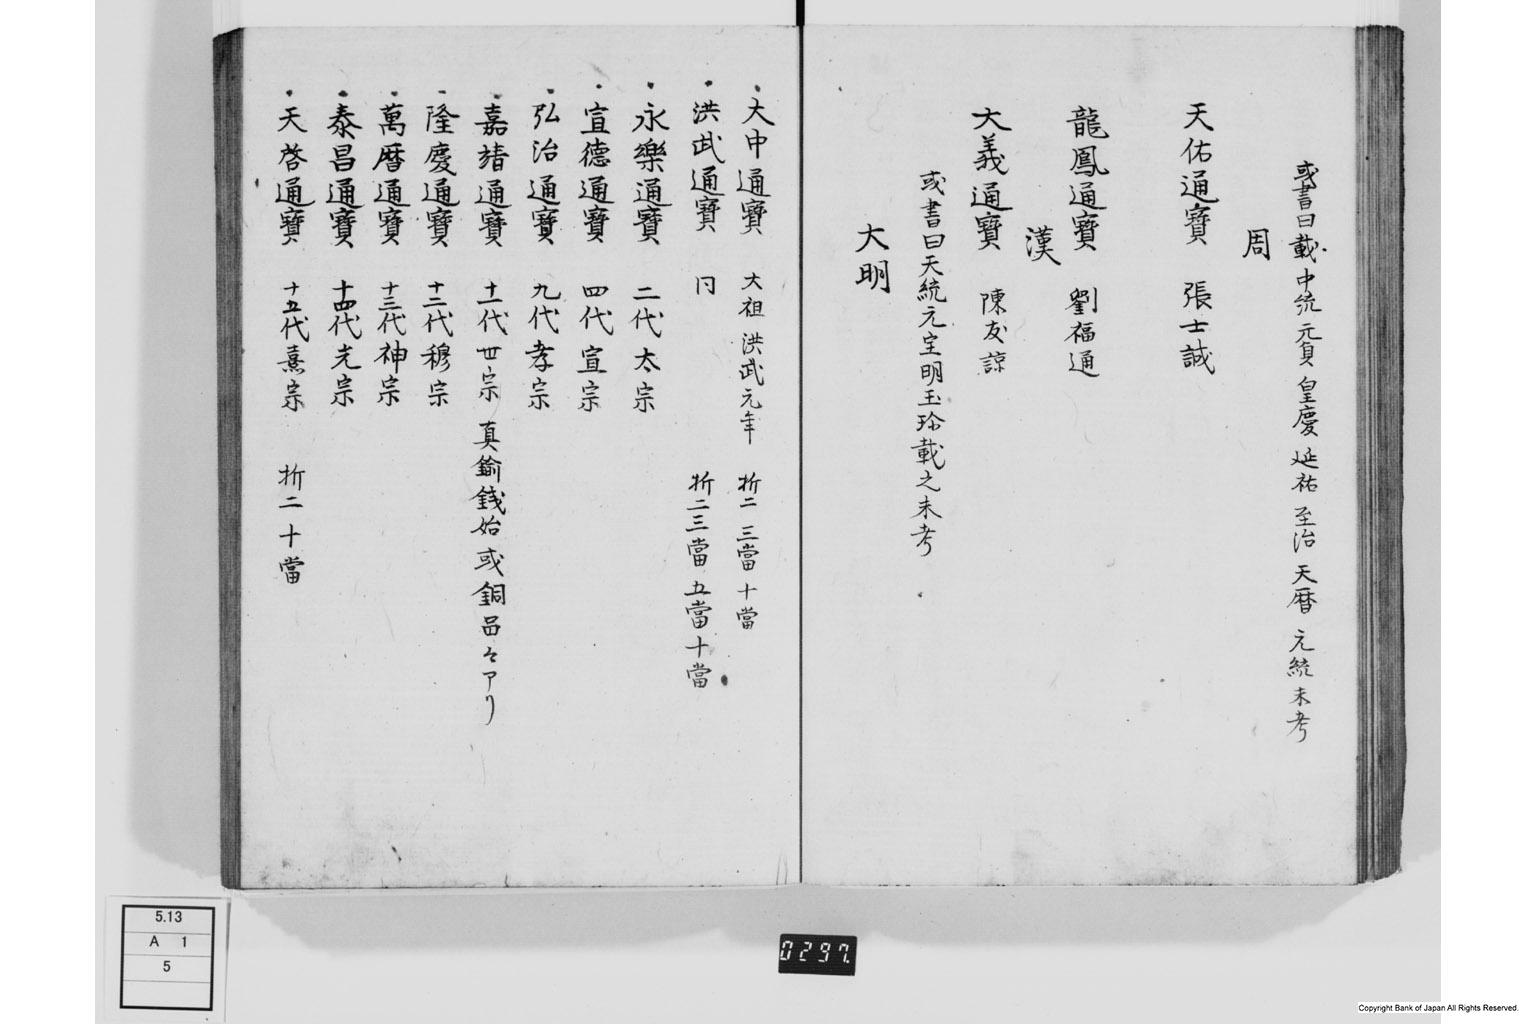 或書曰載中統 元貞 皇慶 延祐 至治 天暦 元統 未考
周
天佑通寳 張士誠
龍鳳通寳 劉福通
漢
大義通寳 陳友諒
或書曰天統元宝明玉珍載之未考
大明
大中通寳 大祖洪武元年 折二 三當 十當
洪武通寳 同 折二三當 五當十當
永樂通寳 二代太宗
宣德通寳 四代宣宗
弘治通寳 九代孝宗
嘉靖通寳 十一代世宗 真鍮銭始 或銅品々アリ
隆慶通寳 十二代穆宗
萬暦通寳 十三代神宗
泰昌通寳 十四代光宗
天啓通寳 十五代熹宗 折二十當
5.13
A 1
5
0297.
Copyright Bank of Japan All Rights Reserved.